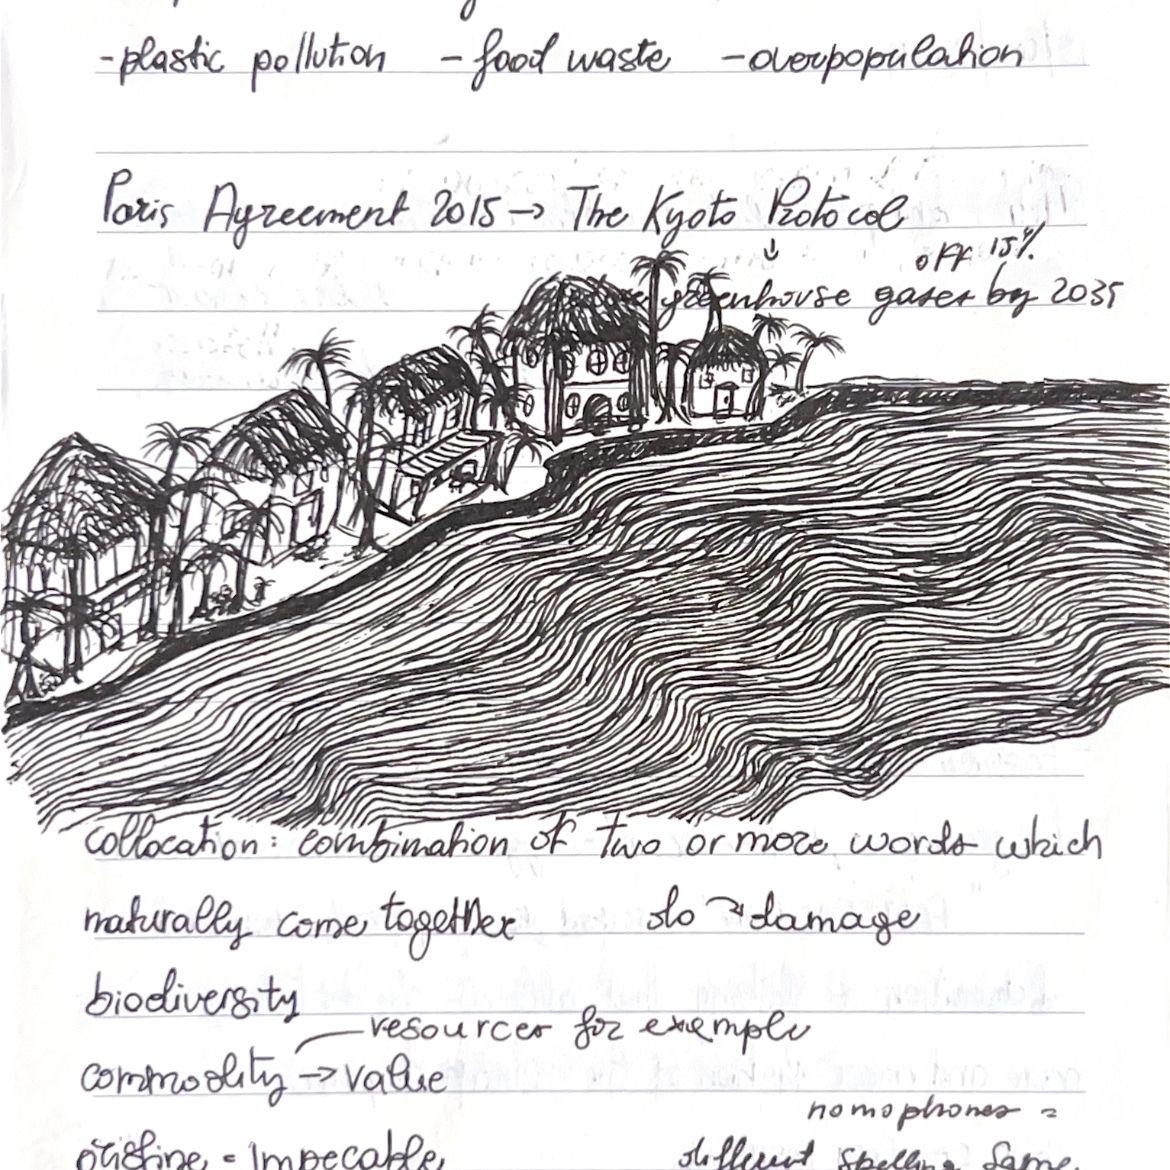 -plastic pollution -food waste -overpopulation
Paris Agreement 2015 → The Kyoto Protocol
↓ off 15%
greenhouse gases by 2035
collocation: combination of two or more words which
naturally come together do → damage
biodiversity
resources for example
commodity → value
nomophones =
pristine = Impecable
different spelling same